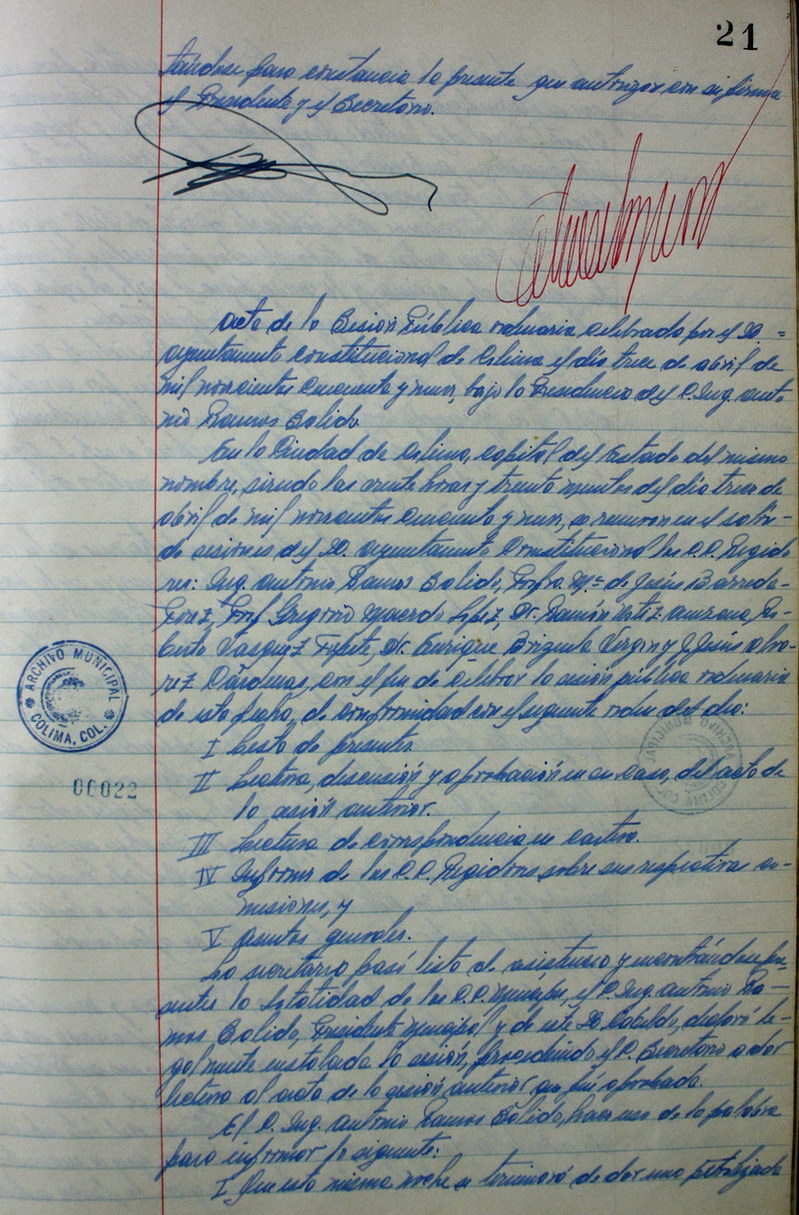 21
tándose para constancia la presente que autorizan con su firma
el Presidente y el Secretario.
Acta de la Sesión Pública ordinaria celebrada por el H. =
Ayuntamiento Constitucional de Colima el día trece de abril de
mil novecientos cincuenta y nueve, bajo la Presidencia del C. Ing. Anto
nio Ramos Salido
En la Ciudad de Colima, capital del Estado del mismo
nombre, siendo las veinte horas y treinta minutos del día trece de
abril de mil novecientos cincuenta y nueve, se reunieron en el salón-
de sesiones del H. Ayuntamiento Constitucional los C.C. Regido
res: Ing. Antonio Ramos Salido, Profra Ma. de Jesús Barreda-
Prof. Gregorio Macedo López, Dr. Ramón Ro-
berto Vásquez Dr. Enrique Brizuela Virgen y J. Jesús Alva-
rez Cárdenas, con el fin de celebrar la sesión pública ordinaria
de esta fecha, de conformidad con el siguiente orden del día:
I Lista de presentes.
II Lectura, discusión y aprobación en su caso, del acta de
la sesión anterior.
III Lectura de correspondencia en cartera.
IV Informes de los C.C. Regidores sobre sus respectivas co-
misiones, y
V Asuntos generales.
La secretaría pasó lista de asistencia y encontrándose pre-
sentes la totalidad de los C.C. Munícipes, el C. Ing. Antonio Ra-
mos Salido, Presidente Municipal y de este H. Cabildo, declaró le-
galmente instalada la sesión, procediendo el C. Secretario a dar
lectura al acta de la sesión anterior que fué aprobada.
El C. Ing. Antonio Ramos Salido, hace uso de la palabra
para informar lo siguiente:
I Que esta misma noche se terminará de dar una petrolizada
ARCHIVO MUNICIPAL
COLIMA, COL.
00022